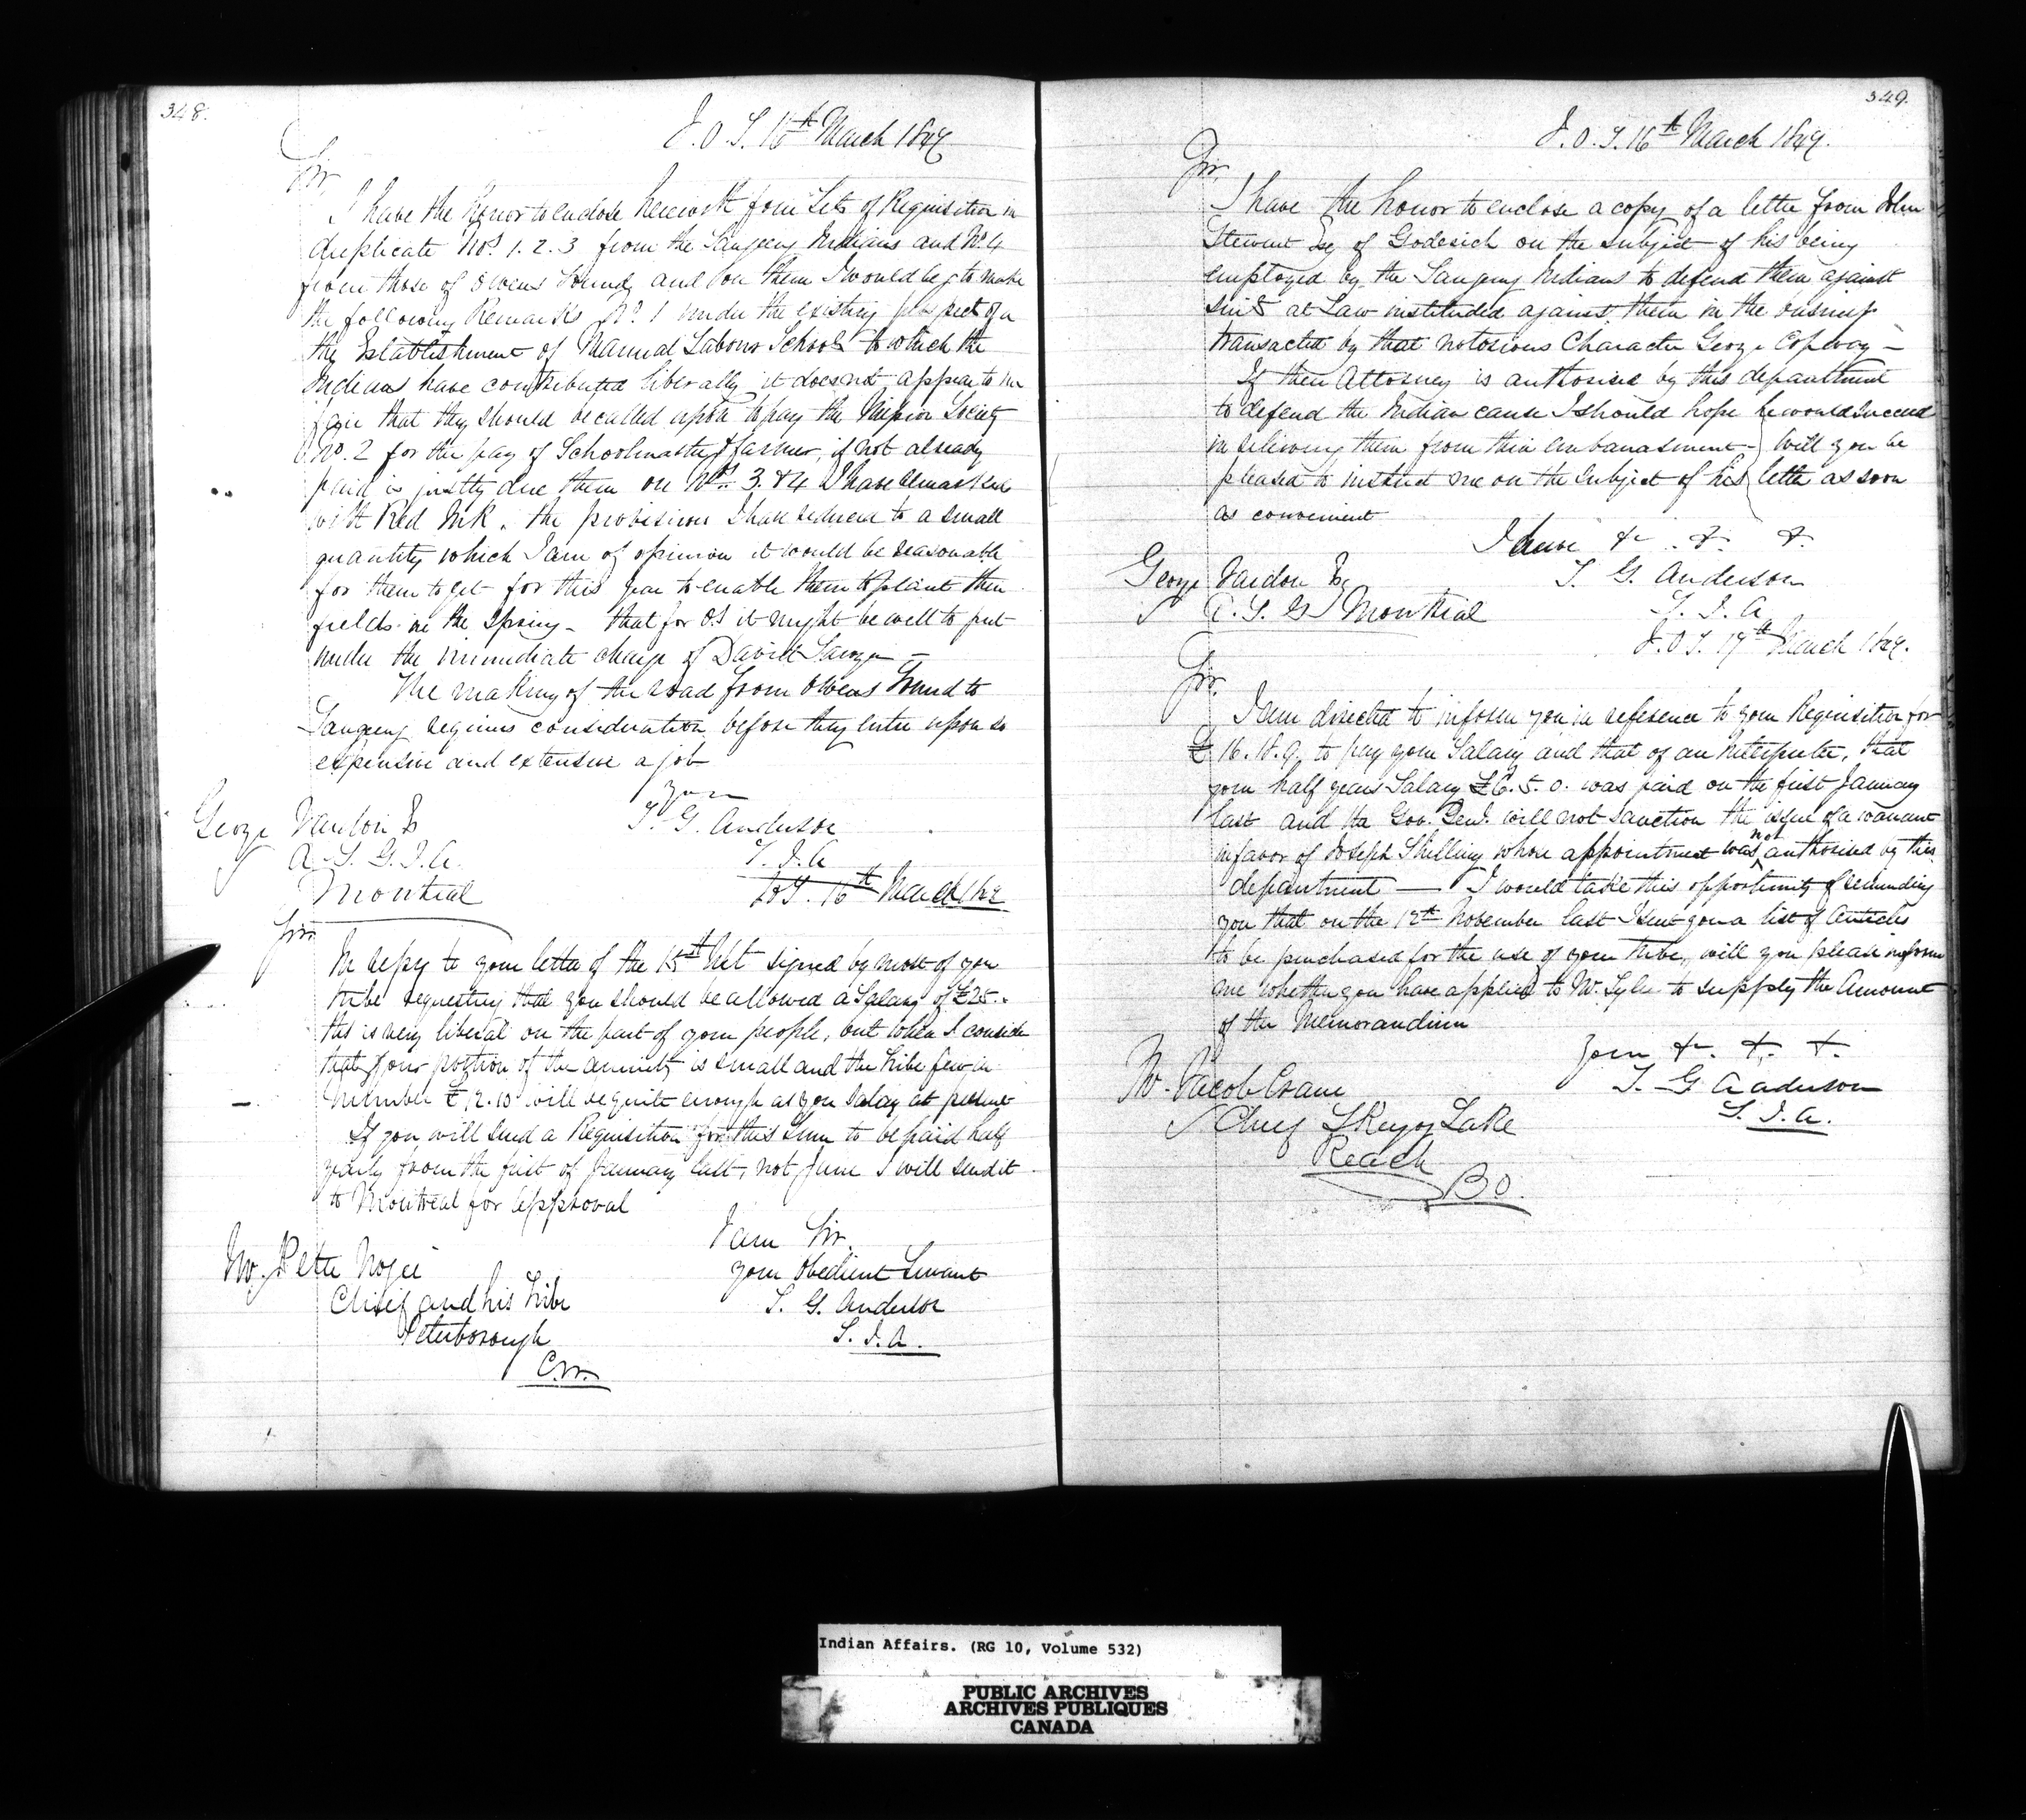 348.
I.O.T. 16th March 1847
Sir
I have the honor to enclose herewith four Sets of Requisition in
duplicate Nos. 1. 2. 3 from the Saugeeng Indians and No. 4
from those of Owens Sound, and on them I would beg to make
the following Remarks No. 1 under the existing prospect of
the Establishment of Manual Labour Schools to which the
Indians have contributed liberally it does not appear to me
fair that they should be called upon to pay the Mission Society
No. 2 for the pay of Schoolmaster & farmer, if not already
paid is justly due them on Nos. 3. & 4 I have remarked
with Red Ink. the provisions I have reduced to a small
quantity which I am of opinion it would be reasonable
for them to get for this year to enable them to plant their
fields in the Spring - that for O.S it might be well to put
under the immediate charge of David Sawyer -
The making of the road from Owens Sound to
Saugeeng requires consideration before they enter upon so
expensive and extensive a job
George Vardon Es
A. S. G. I. A.
Montreal
your
T. G. Anderson
S. I. A
16th March
Sir
In reply to your letter of the 15th Ult signed by most of you
tribe requesting that you should be allowed a Salary of £25.
this is very liberal on the part of your people, but when I consider
that your portion of the annuity is small and the tribe few in
number £12.10 will be quite enough as you Salary at present
If you will send a Requisition for this sum to be paid half
yearly from the first of January last, not June I will send it
to Montreal for approval
I am Sir.
your Obedient Servant
T. G. Anderson
S. I. A.
Mr. Peter Nogee
Chief and his tribe
Peterborough
C.W.
349.
I.O.T. 16th March 1847.
Sir
I have the honor to enclose a copy of a letter from John
Stewart Esq of Goderich on the subject of his being
employed by the Saugeeng Indians to defend them against
suits at Law instituted against them in the business
transacted by that notorious Character George Copway -
If then Attorney is authorised by this department
to defend the Indian cause I should hope he would succeed
in relieving them from their embarrasment - Will you be
pleased to instruct me on the Subject of his letter as soon
as convenient
I have &c. &. &.
T. G. Anderson
S. I. A
George Vardon Es
A. S. G. Montreal
I.O.T. 17th March 1847.
Sir.
I am directed to inform you in reference to your Requisition for
£16. 18. 9. to pay your Salary and that of an Interpreter, that
your half years Salary £6. 5. 0. was paid on the first January
last and the Gov. Genl. will not sanction the issue of a warrant
in favor of Joseph Skilling whose appointment was not authorised by this
department — I would take this opportunity of reminding
you that on the 12th November last I sent you a list of Articles
to be purchased for the use of your tribe, will you please inform
me whether you have applied to Mr. Tyler to supply the Amount
of the Memorandum
your &c. &. &.
T. G Anderson
S. I. A.
Mr. Jacob Crane
Chief Skugog Lake
Reach
Indian Affairs. (RG 10, Volume 532)
PUBLIC ARCHIVES
ARCHIVES PUBLIQUES
CANADA